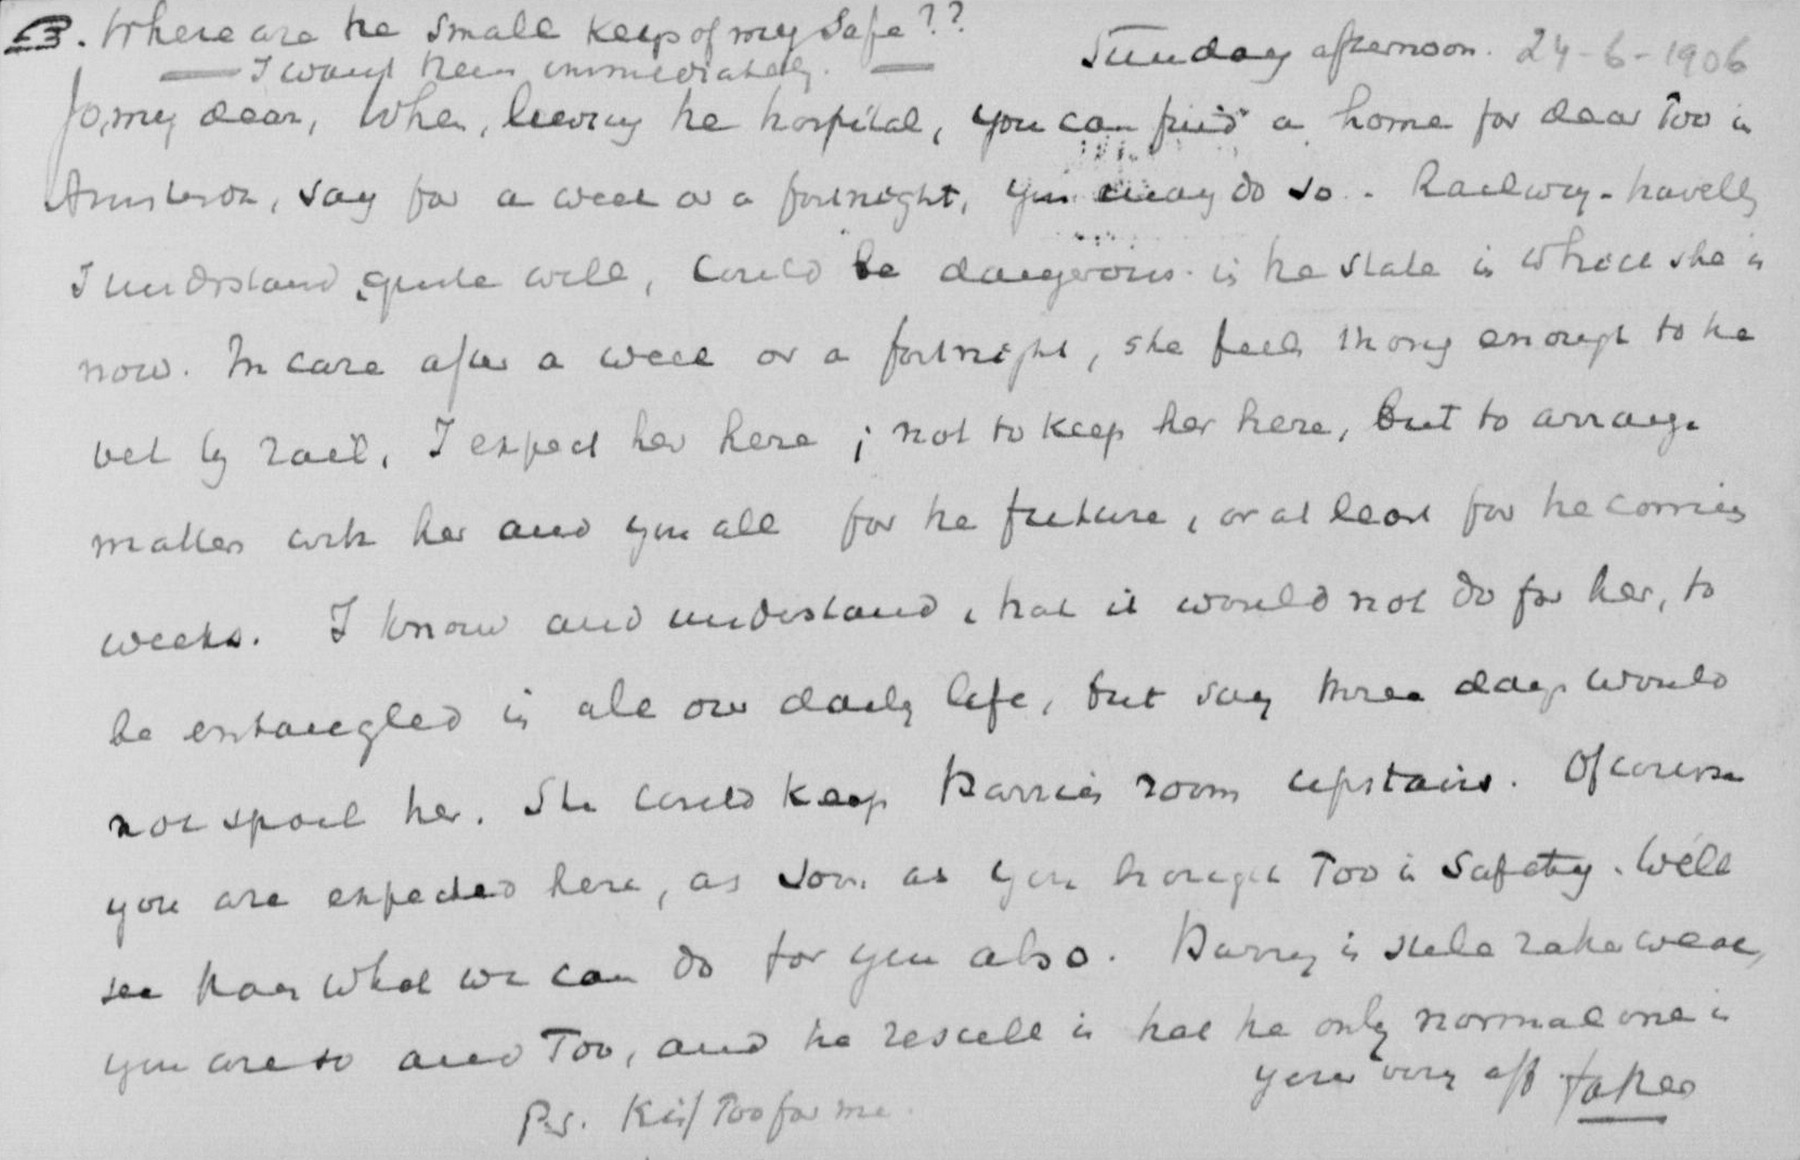 B. Where are the small keys of my Safe??
— I want them immediately. —
Sunday afternoon. 24-6-1906
Jo, my dear, When, leaving the hospital, you can find a home for dear Too in
Amsterdam, say for a week or a fortnight, you may do so. Railway-travelling
I understand quite well, could be dangerous in the state in which she is
now. In case after a week or a fortnight, she feels strong enough to tra
vel by rail, I expect her here; not to keep her here, but to arrange
matters with her and you all for the future, or at least for the coming
weeks. I know and understand, that it would not do for her, to
be entangled in all our daily life, but say three days would
not spoil her. She could keep Barrie's room upstairs. Of course
you are expected here, as soon as you brought Too in Safety. We'll
see than what we can do for you also. Barry is still rather weak,
you are so and Too, and the result is that the only normal one is
your very aff father
P.S. Kiss Too for me.